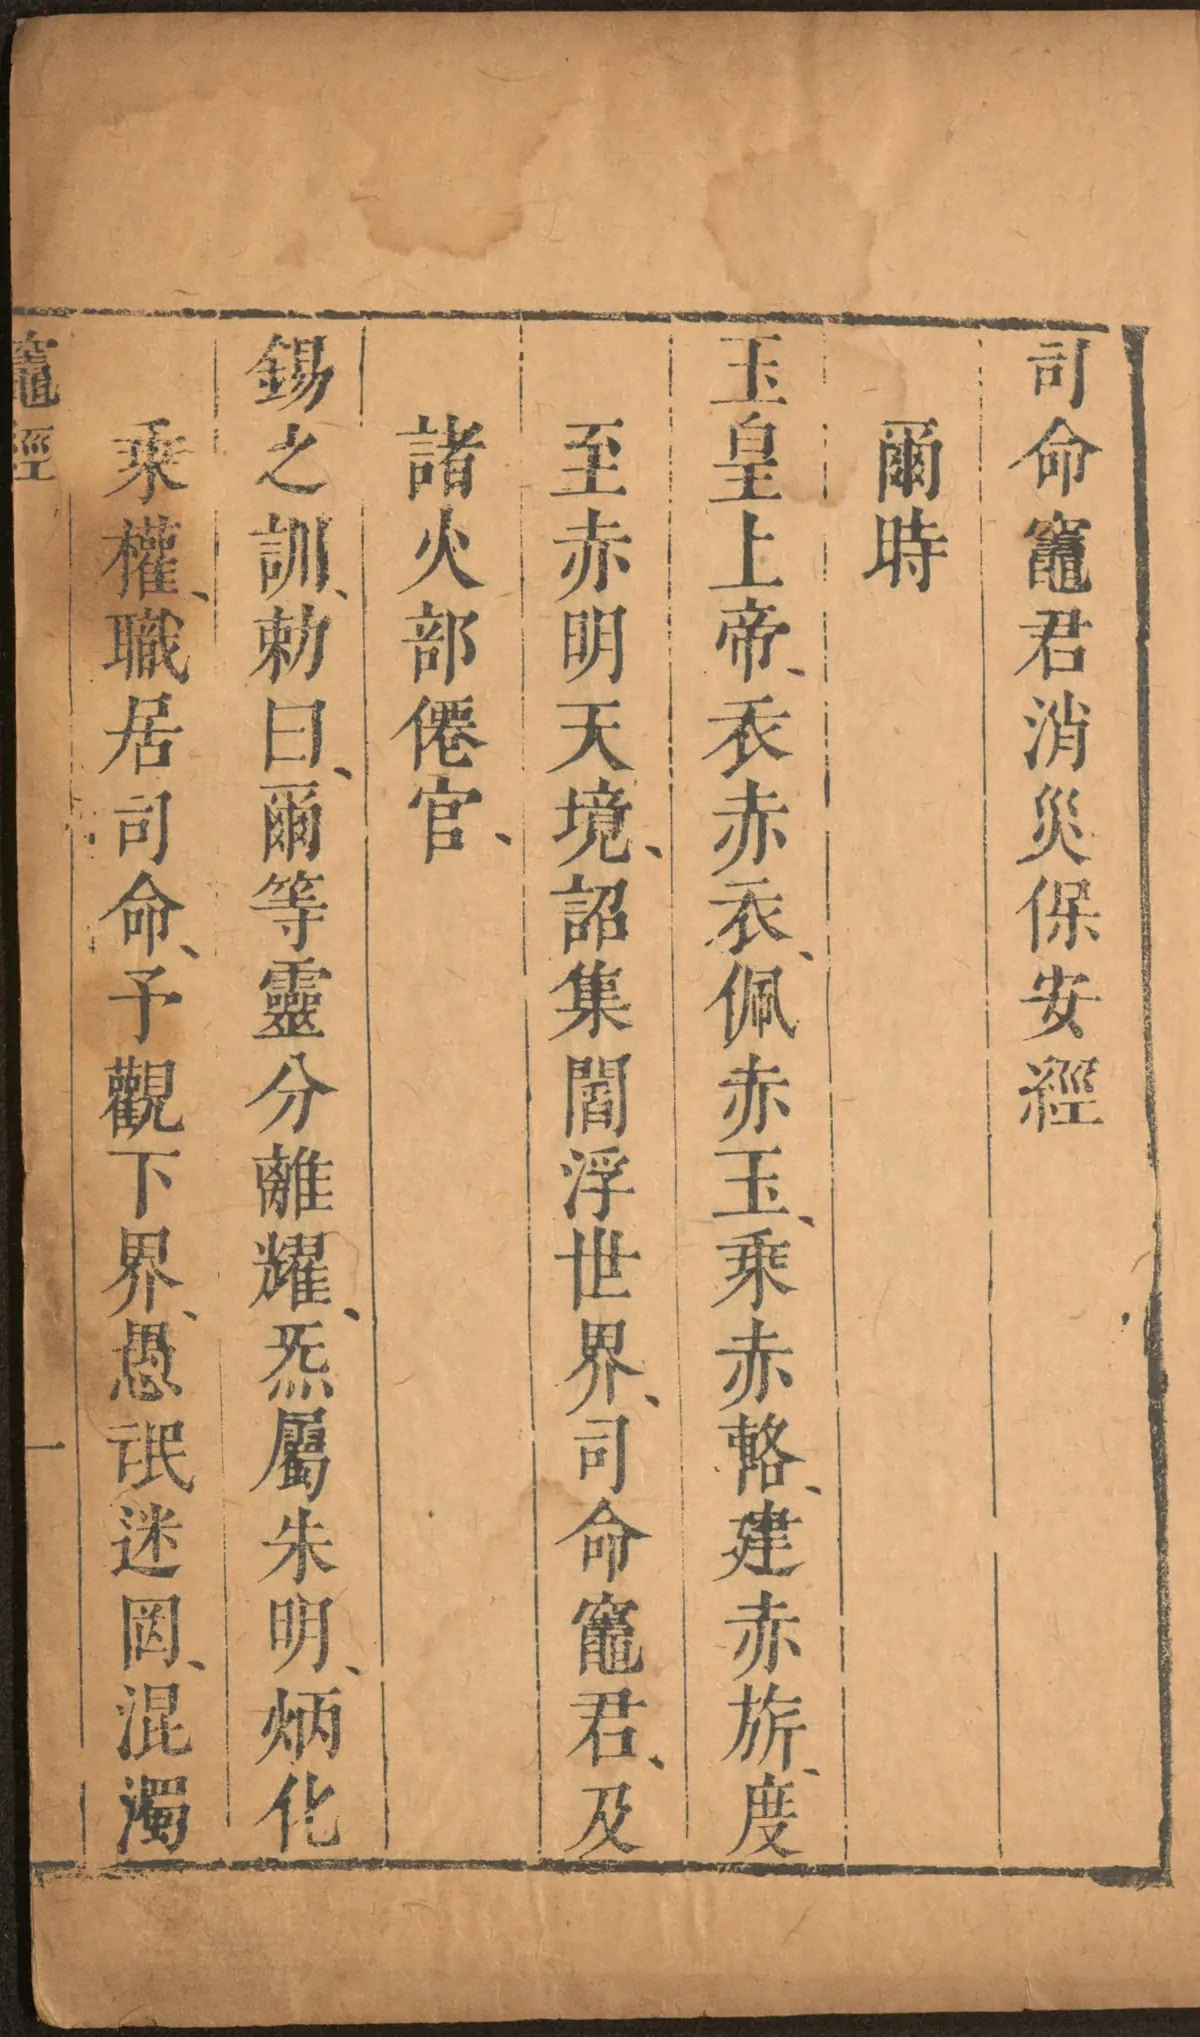 司命竈君消災保安經
爾時
玉皇上帝、衣赤衣、佩赤玉、乘赤輅、建赤旂、度
至赤明天境、詔集閻浮世界、司命竈君、及
諸火部僊官、
錫之訓、勅曰、爾等靈分離耀、炁屬朱明、炳化
乘權、職居司命、予觀下界、愚氓迷罔、混濁
竈經
一